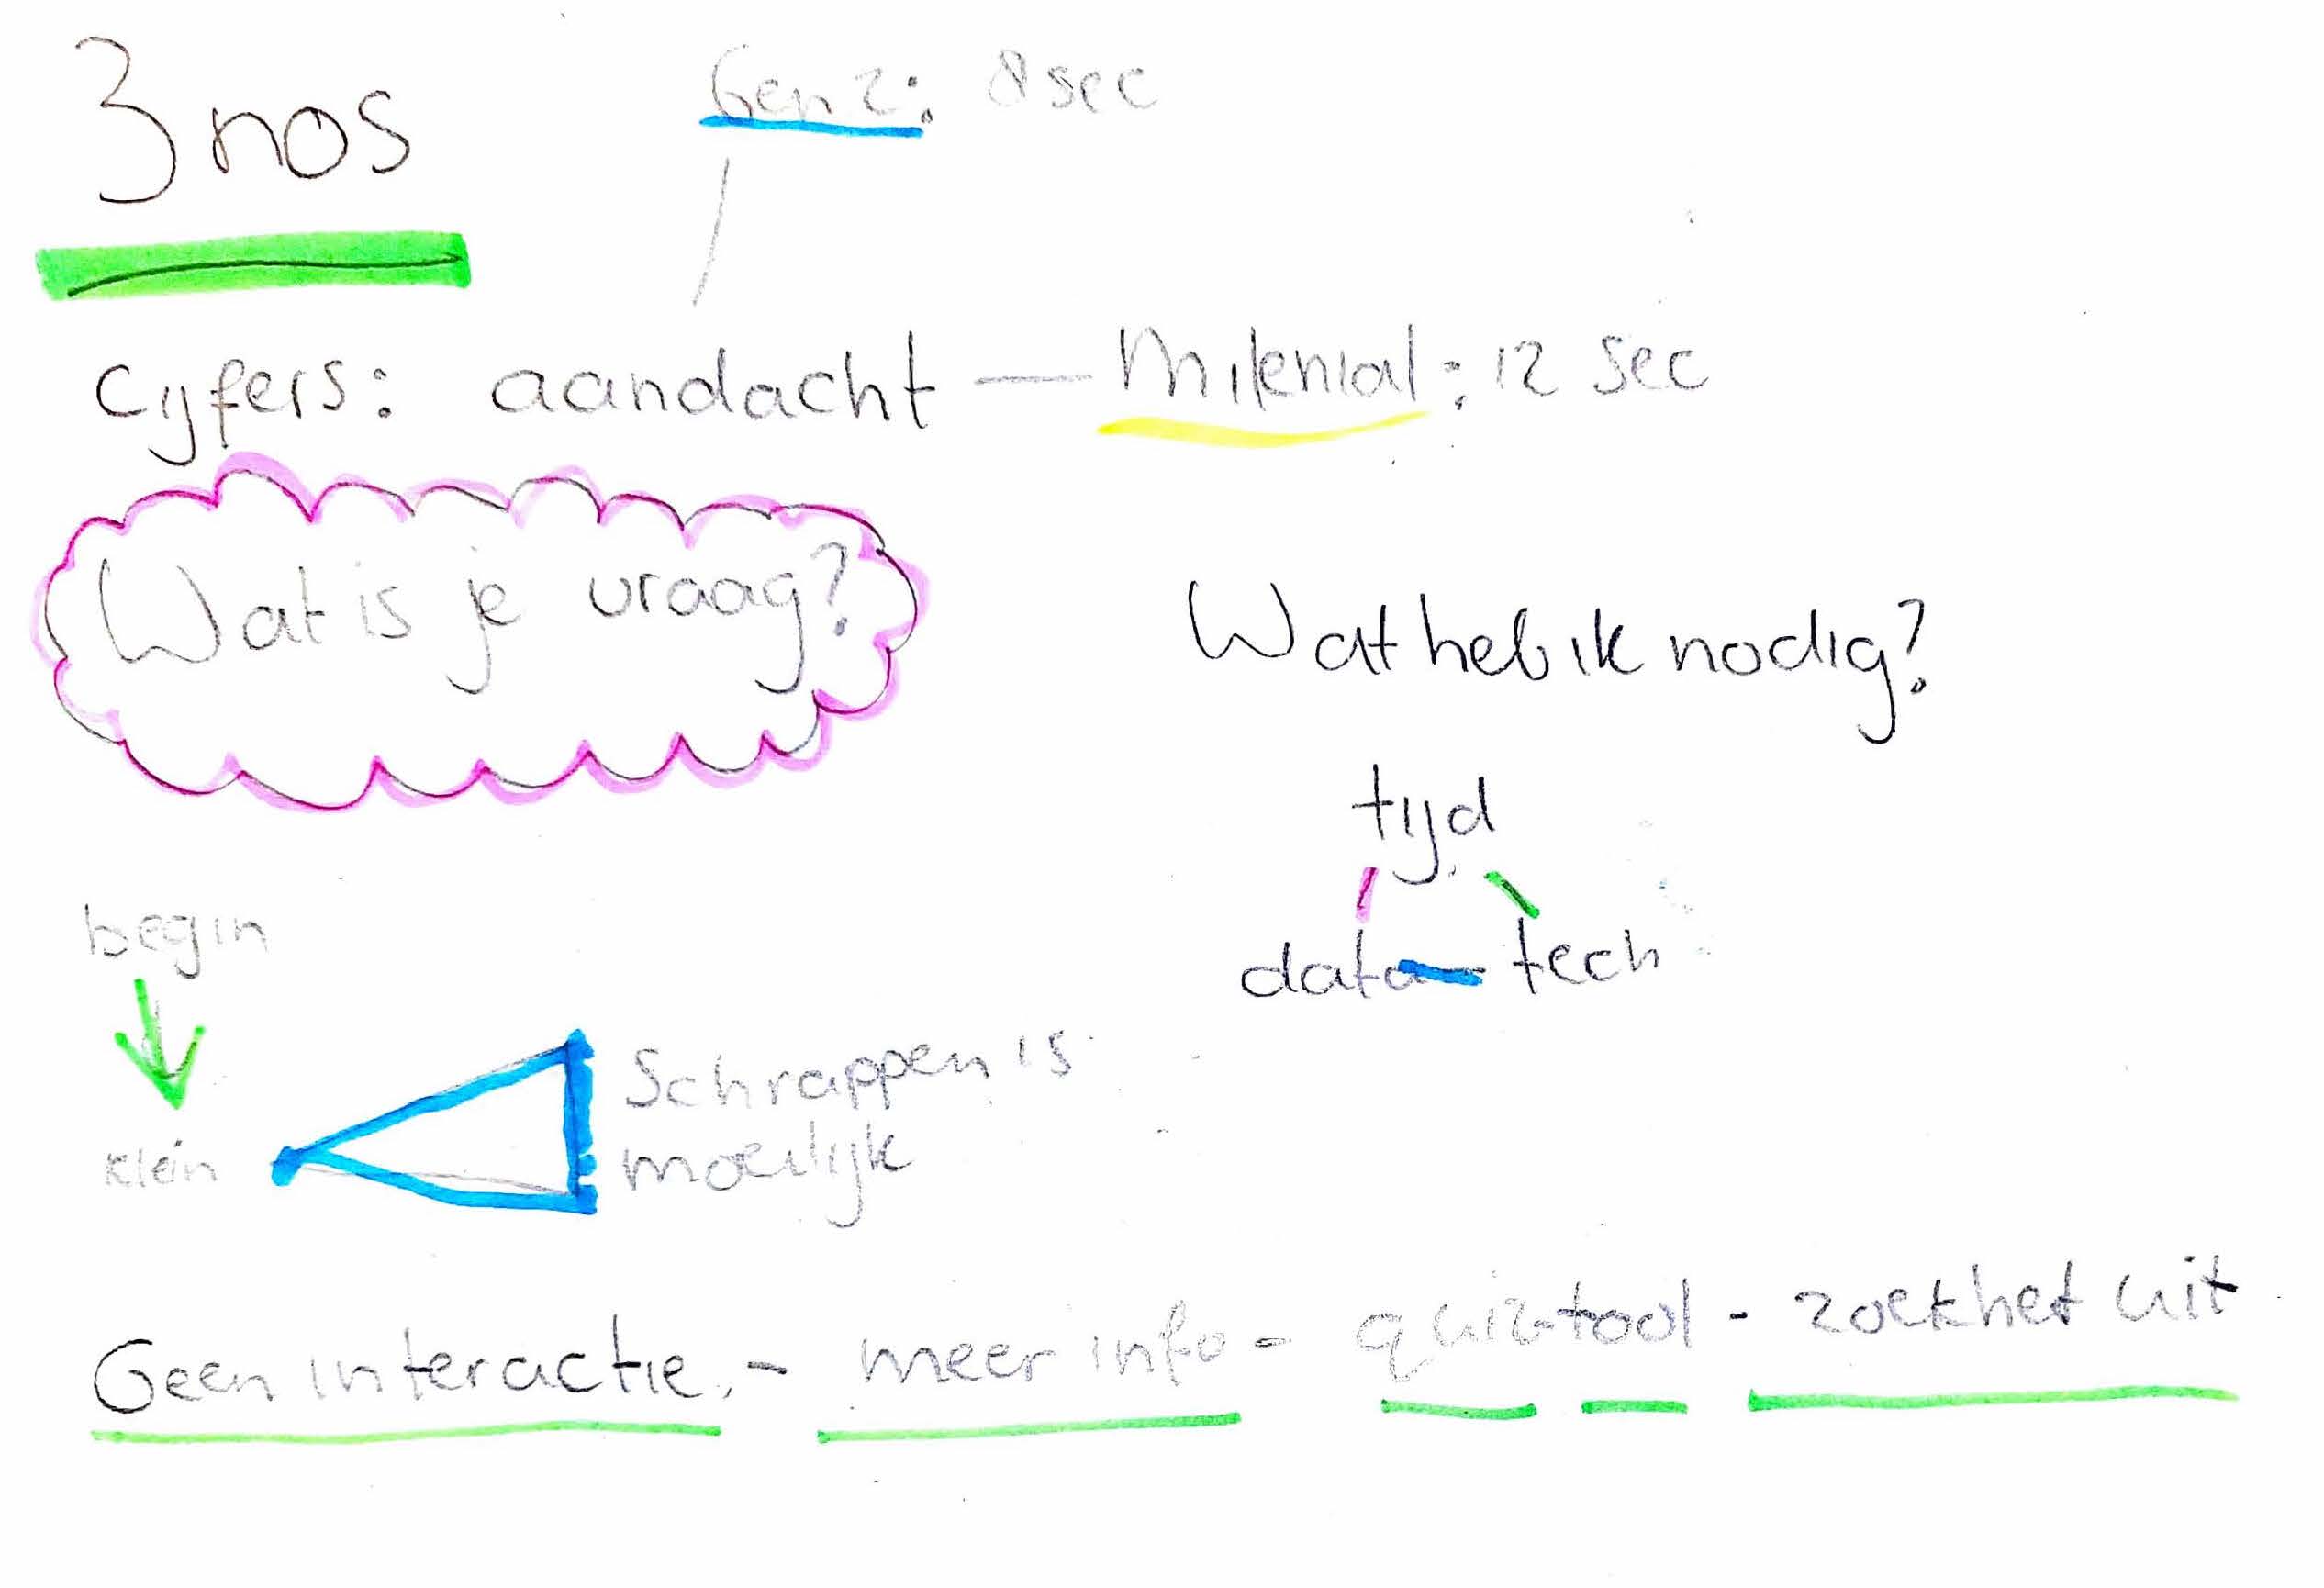 3 nos
Gen Z: 8 sec
cijfers: aandacht — Milenial: 12 sec
Wat is je vraag?
Wat heb ik nodig?
tijd
data — tech
begin
klein
Schrappen is
moeilijk
Geen interactie. - meer info - quiztool - zoek het uit